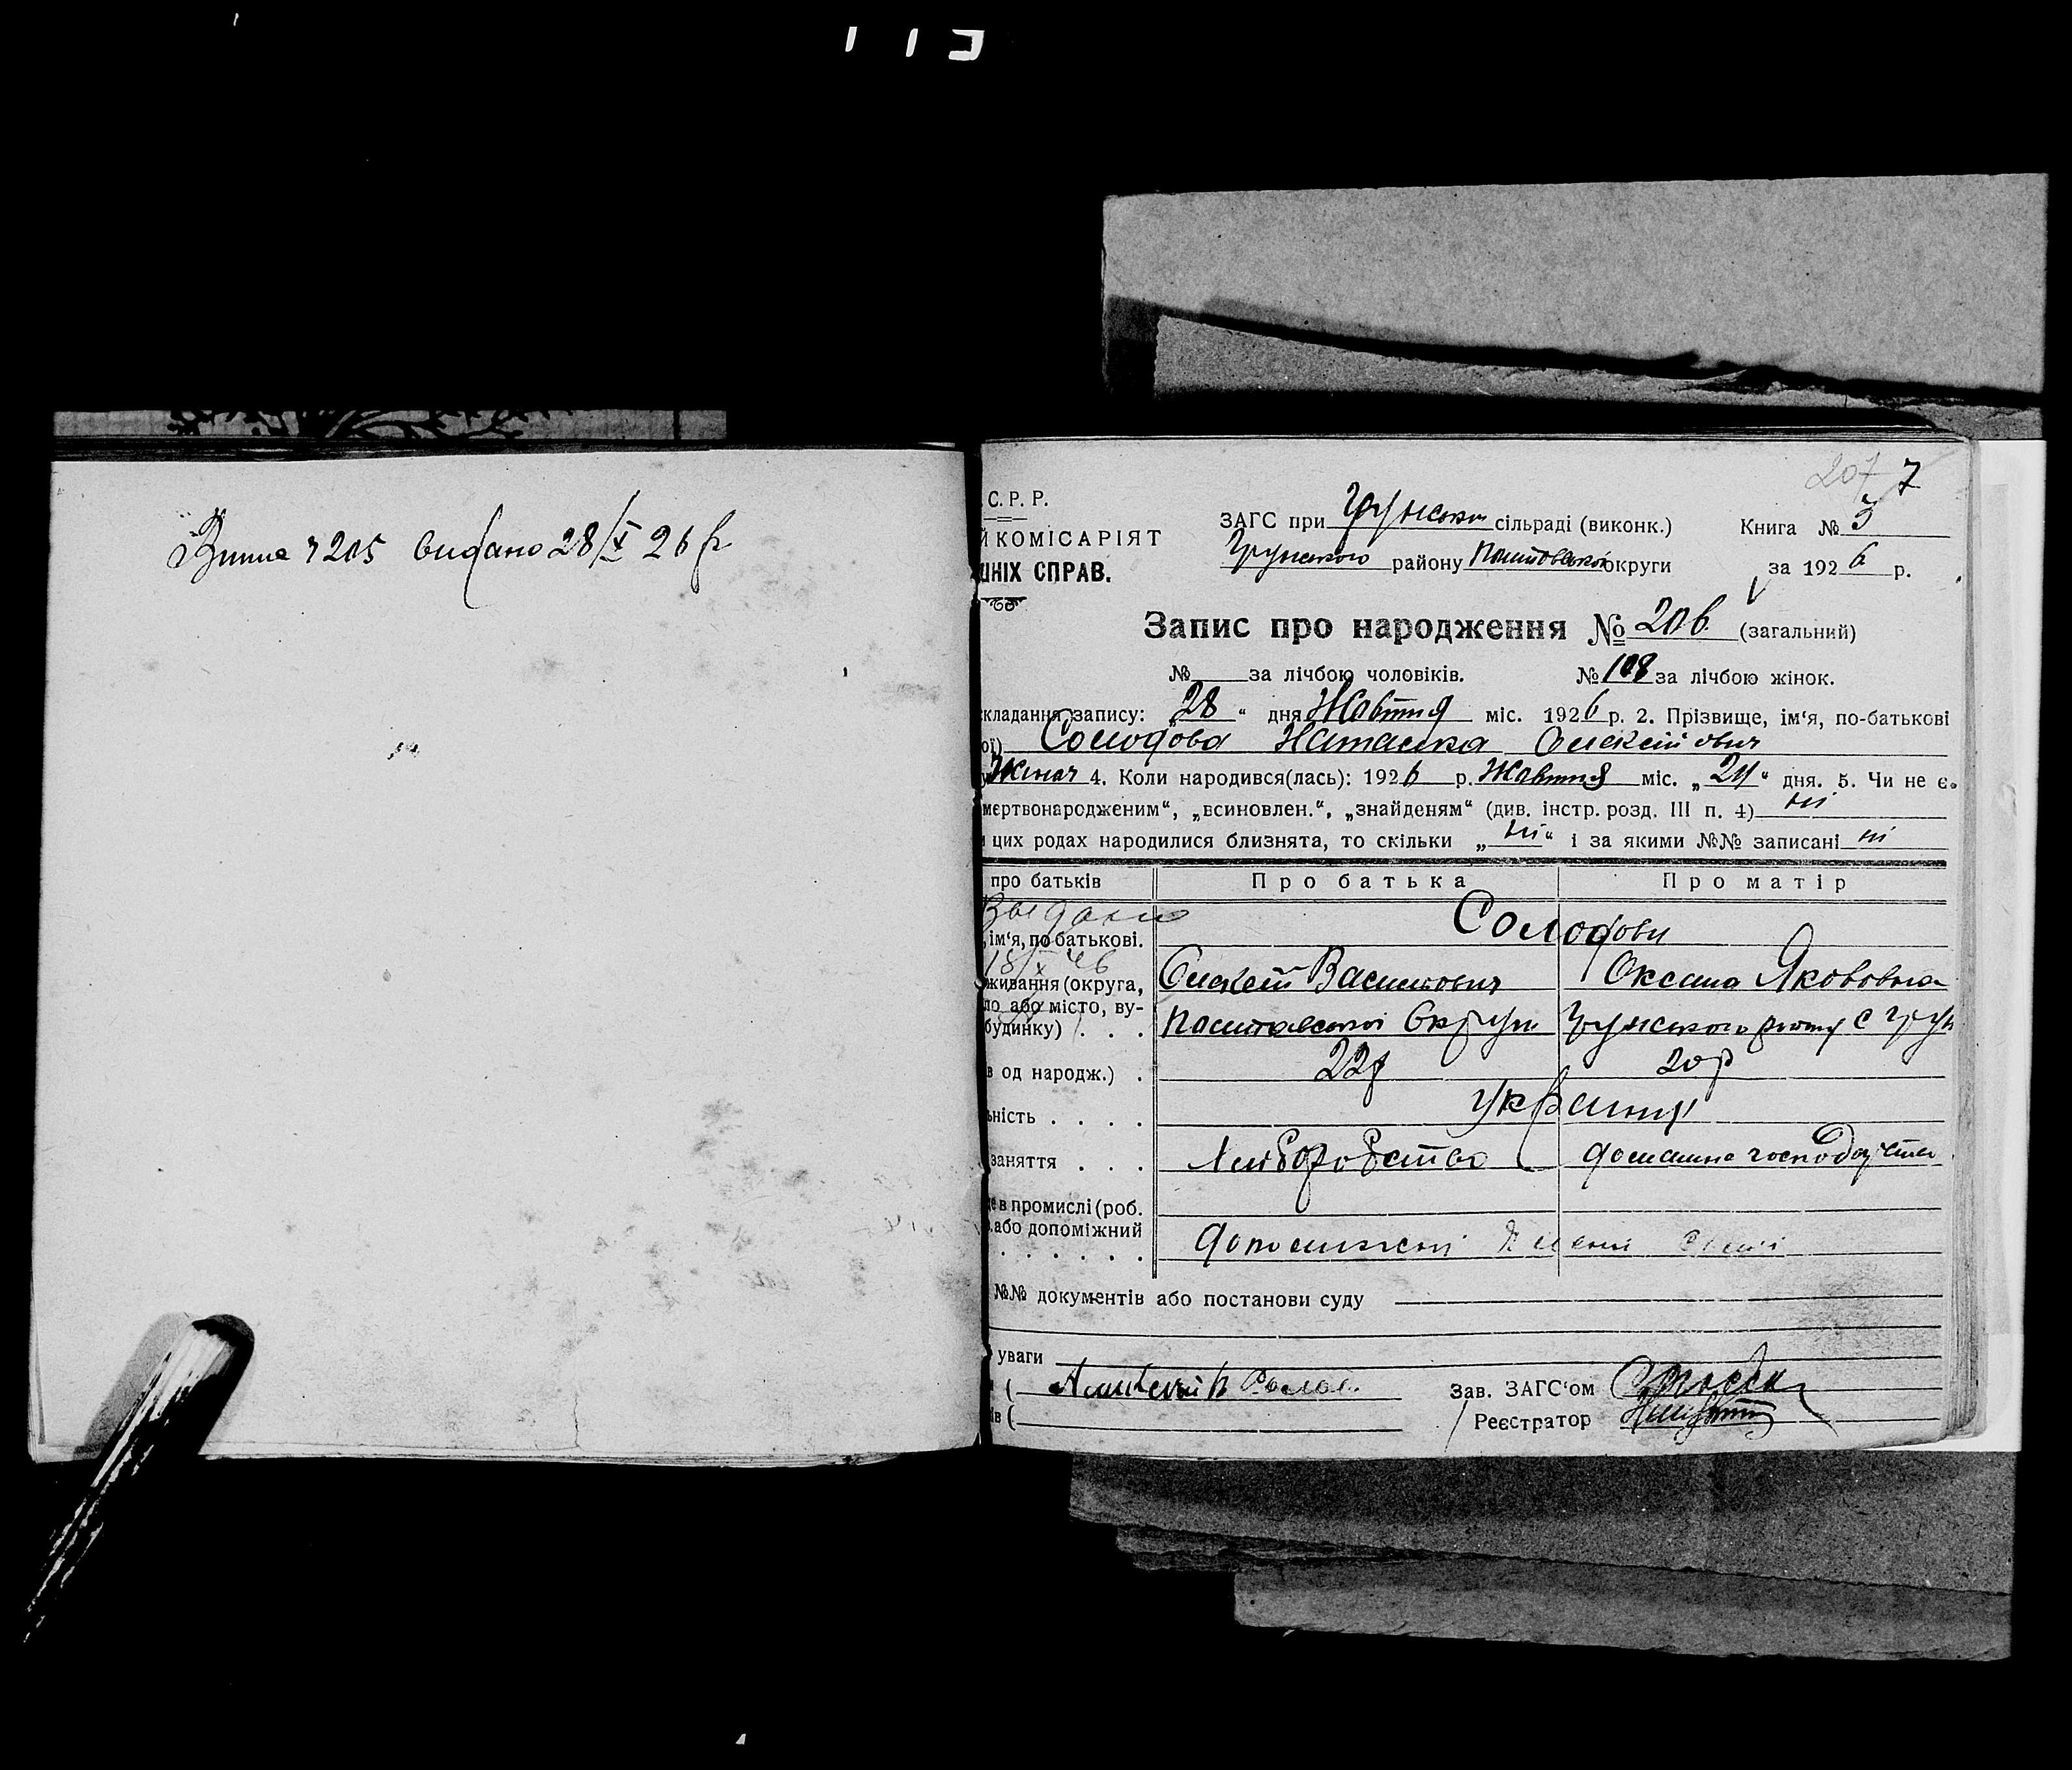 Випис ч 205 видано 28/X 26 р
207 7
С. Р. Р.
Й КОМІСАРІЯТ
ШНІХ СПРАВ.
ЗАГС при Грунській сільраді (виконк.) Книга № 3
Грунського району Полтавської округи за 1926 р.
Запис про народження № 206 (загальний)
№ за лічбою чоловіків. № 108 за лічбою жінок.
складання запису: „28“ дня Жовтня міс. 1926 р. 2. Прізвище, ім‘я, по-батькові
ої) Солодова Наталка Олексійович
Жіноч 4. Коли народився(лась): 1926 р. Жовтня міс. „24“ дня. 5. Чи не є
мертвонародженим“, „всиновлен.“, „знайденям“ (див. інстр. розд. III п. 4) ні
цих родах народилися близнята, то скільки „ні“ і за якими №№ записані ні
про батьків Про батька Про матір
Солодови
ім‘я, по батькові.
Олексій Василович Оксана Якововна
живання (округа,
ло або місто, ву-
будинку) . . . Полтавської Округи Грунського району С Грунь
в од народж.) . 22р 20р
ьність . . . . Українці
заняття . . . Хліборобство домашнє господарство
в промислі (роб.
або допоміжний
. . . . . . допомагає
№№ документів або постанови суду
уваги
( Зав. ЗАГС‘ом
ів ( Реєстратор